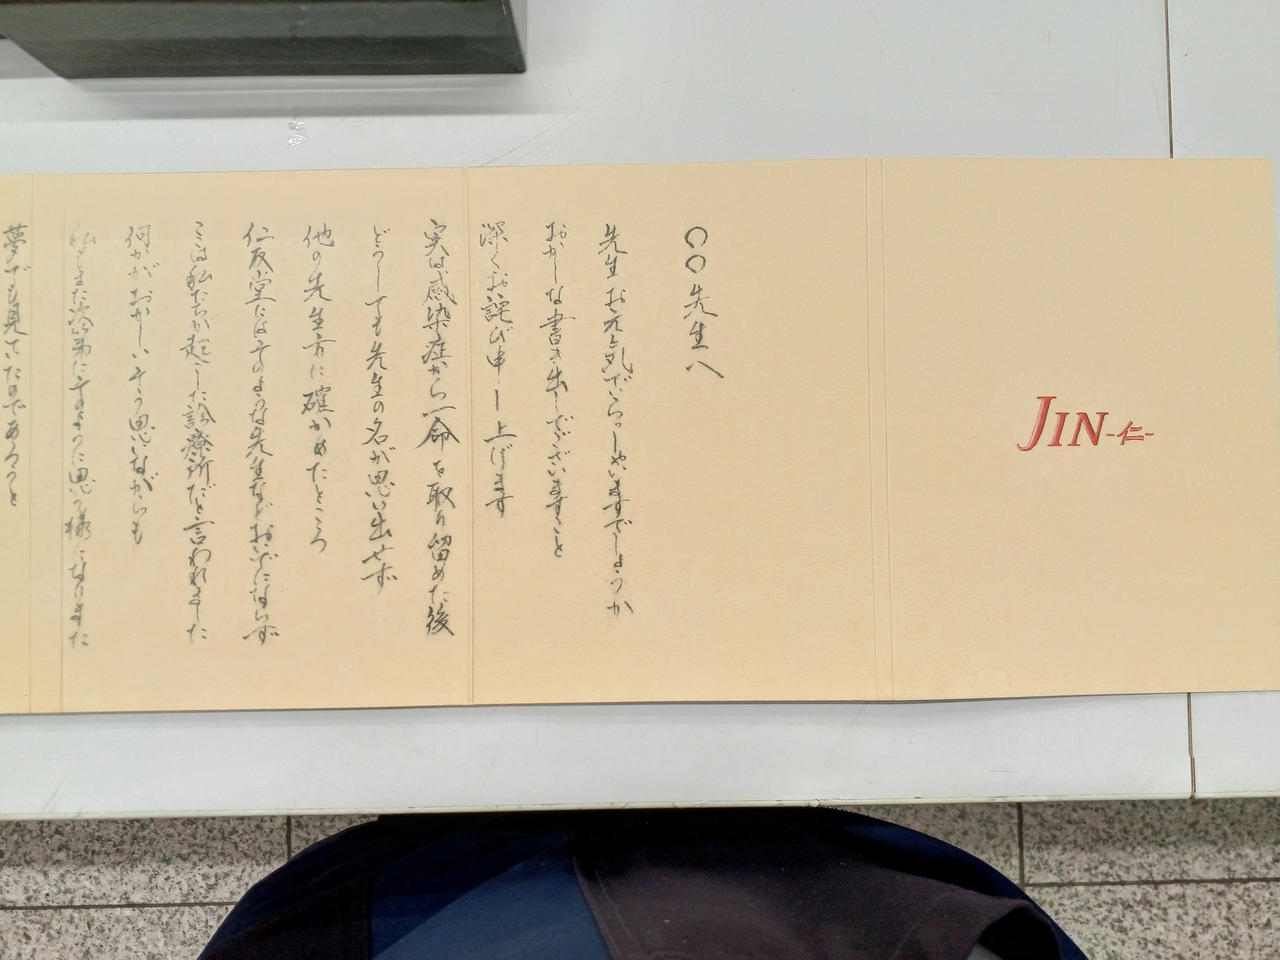 JIN-仁-
〇〇先生へ
先生お元気でいらっしゃいますでしょうか
おかしな書き出しでございますこと
深くお詫び申し上げます
実は感染症から一命を取り留めた後
どうしても先生の名が思い出せず
他の先生方に確かめたところ
仁友堂にはそのような先生などおいでにならず
ここは私たちが起こした診療所だと言われました
何かがおかしいそう思いながらも
私もまた次第にそのように思う様になりました
夢でも見ていたのであろうと